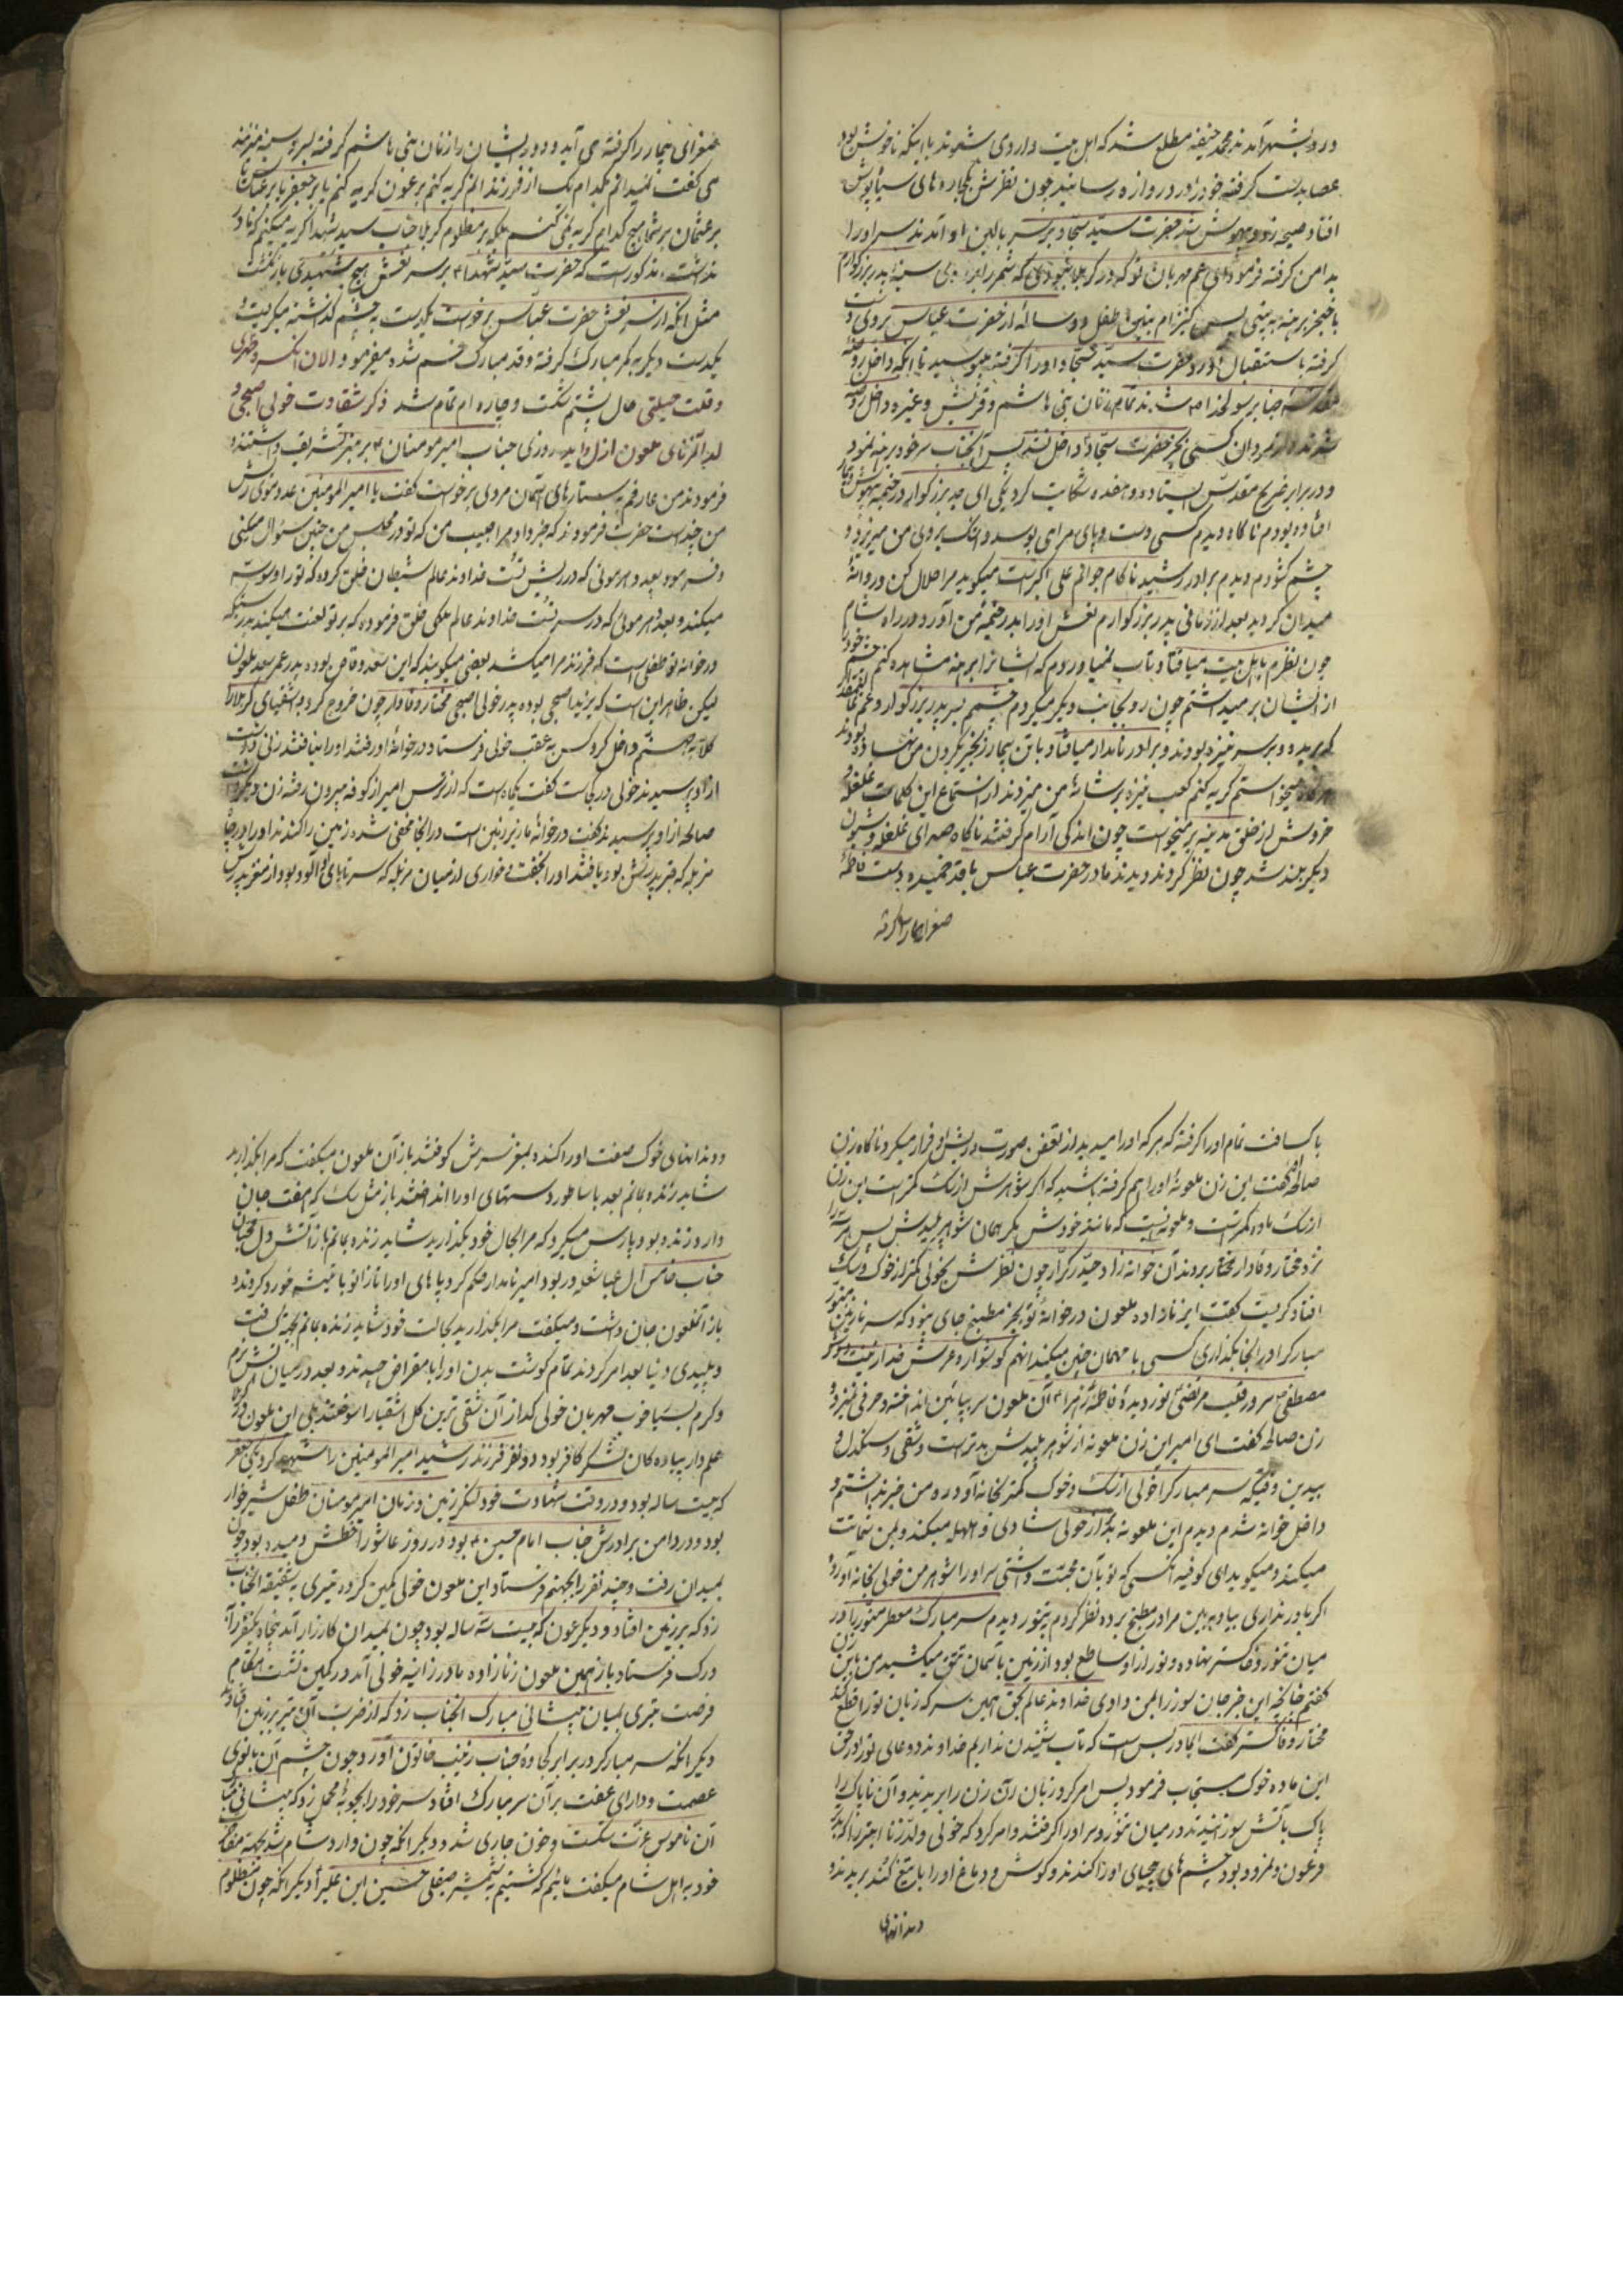 ورود بشهر آمدند محمد حنیفه مطلع شد که اهل بیت وارد می شوند با اینکه ناخوش بود
عصا بدست گرفته خود را در دروازه رسانید چون نظرش بکجاوه های سیاپوش
افتاد صیحه زد و بیهوش شد حضرت سید سجاد بر سر بالین او آمدند سر او را
بدامن گرفته فرمود ای عم مهربان تو که در کربلا نبودی که شمر را بر روی سینه پدر بزرگوارم
با خنجر برهنه به بینی پس طفل دو ساله از حضرت عباس بروی دست
گرفته باستقبال آورد حضرت سید سجاد او را گرفته بوسید تا اینکه داخل روضه
جناب رسولخدا شدند تمام زنان بنی هاشم و قریش و غیره داخل روضه
شدند از مردان کسی بجز حضرت سجاد داخل نشد پس آنجناب سر خود برهنه نمود
و در برابر ضریح مقدس ایستاده و شکایت کرد یکی ای جد بزرگوار در خیمه بیهوش
افتاده بودم ناگاه دیدم کسی دست و پای مرا می بوسد و اشک بروی من میریزد و
چشم گشودم دیدم برادر رشید ناکام جوانم علی اکبر است میگوید مرا حلال کن و روانه
میدان گردید بعد از زمانی پدر بزرگوارم نعش او را بدر خیمه من آورد و در راه شام
چون نظرم باهل بیت میافتاد تاب نمیاوردم که ایشانرا برهنه مشاهده کنم چشم خود را
از ایشان بر میداشتم چون رو بجانب دیگر میکردم چشمم بسر پدر بزرگوار و عم
که بریده و بر سر نیزه بودند و برادر نامدار میافتاد با تن بیمار زنجیر بگردن من نهاده بودند
میخواستم گریه کنم کعب نیزه بر شانه من میزدند از استماع این کلمات غلغله و
خروش از خلق مدینه بر میخواست چون اندکی آرام گرفتند ناگاه صدای غلغله و شیون
دیگر بلند شد چون نظر کردند دیدند مادر حضرت عباس با قد خمیده دست فاطمه
صغرای بیمار را گرفته
صغرای بیمار را گرفته می آید و دور ایشان را زنان بنی هاشم گرفته بسر و سینه میزنند
می گفت نمیدانم بکدام یک از فرزندانم گریه کنم بر عون گریه کنم یا بر جعفر یا بر عباس یا
بر عثمان بر شما هیچ کدام گریه نمی کنم بلکه بر مظلوم کربلا جناب سید شهدا گریه میکنم که مادر
نداشت مذکور است که حضرت سید شهدا بر سر نعش هیچ شهیدی بازنگشت
مثل آنکه از سر نعش حضرت عباس برخواست یکدست به چشم گذاشته میگریست
یکدست دیگر به کمر مبارک گرفته و قد مبارک خم شده میفرمود الان انکسر ظهری
و قلت حیلتی حال پشتم شکست و چاره ام تمام شد ذکر شقاوت خولی اصبحی و
روزی جناب امیر مومنان بر منبر تشریف داشتند
فرمودند من عارفم به ستارهای آسمان مردی برخواست گفت یا امیر المومنین عدد موی ریش
من چند است حضرت فرمودند که خبر داد مرا حبیب من که تو در مجلس من چنین سؤال میکنی
و فرمود بعدد هر موئی که در ریش تست خداوند عالم شیطان خلق کرده که تو را وسوسه
میکند و بعدد هر موئی که در سر تست خداوند عالم ملکی خلق فرموده که بر تو لعنت میکند بدرستیکه
در خوانه تو طفلی است که فرزند مرا میکشد بعضی میگویند که این سعد وقاص بوده پدر عمر سعد ملعون
لیکن ظاهر این است که یزید اصبحی بوده پدر خولی اصبحی مختار وفادار چون خروج کرد و اشقیای کربلا را
کلا به جهنم داخل کرد کس به عقب خولی فرستاد در خوانه او رفتند او را نیافتند زنی داشت
از او پرسیدند خولی در کجاست گفت یکماه است که از ترس امیر از کوفه بیرون رفته زن دیگر داشت
صالحه از او پرسیدند گفت در خوانه ما زیر زمین است در آنجا مخفی شده زمین را کندند او را در چاه
مزبله که قبر پدرش بود یافتند او را بخفت و خواری از میان مزبله که سر تا پای او آلوده بود از مقر پدرش
با کسافت تمام او را گرفته که هر که او را میدید از تعفن صورت و ریش او فرار میکرد ناگاه زن
صالحه گفت این زن ملعونه او را هم گرفته باشید که اگر شوهرش از سگ کمتر است این زن
از سگ ماده کمتر است و ملعونه ایست که مانند خودش مگر همان شوهر پلیدش پس هر سه را
نزد مختار وفادار مختار بردند آن خوانه زاد حیدر کرار چون نظرش بخولی کمتر از خوک و سگ
افتاد گریست گفت ای زنازاده ملعون در خوانه تو بجز مطبخ جای نبود که سر نازنین منور
مبارک را در آنجا بگذاری کسی با مهمان چنین میکند انهم گوشوار عرش خدا زینت دوش
مصطفی سرور قلب مرتضی نور دیده فاطمه زهرا آن ملعون سر بپائین انداخته و حرفی نمیزد و
زن صالحه گفت ای امیر این زن ملعونه از شوهر پلیدش بدتر است و شقی و سنگدل و
بیدین وقتیکه سر مبارک را خولی از سگ و خوک کمتر بخانه آورده من خبر نداشتم و
داخل خوانه شدم دیدم این ملعونه بدتر از خولی شادی و هلهله میکند و بمن شماتت
میکند و میگوید ای کوفیه آنکسی که تو بآن محبت داشتی سر او را شوهر من خولی بخانه آورد
اگر باور نداری بیا و ببین مرا در مطبخ برده نظر کردم به تنور دیدم سر مبارک معطر منور را در
میان تنور و خاکستر نهاده و نور از او ساطع بود از زمین بآسمان تتق میکشید من باین زن
گفتم چنانچه این خبر جان سوز را بمن دادی خداوند عالم بحق همین سر که زبان تو را قطع کند
مختار وفا گستر گفت ای مادر بس است که تاب شنیدن نداریم خداوند دعای تو را در حق
این ماده خوک مستجاب فرمود پس امر کرد زبان آن زن را بریدند و آن ناپاک را
پاک بآتش سوزانیدند در میان تنور و مراد را گرفتند و امر کرد که خولی ولدزنا
فرعون و نمرود بود چشم های بیحیای او را کندند و گوش و دماغ او را با تیغ کند بریدند
دندانهای
و دندانهای خوک صفت او را کنده بمغز سرش کوفتند باز آن ملعون میگفت که مرا بگذارید
شاید زنده بمانم بعد با ساطور دستهای او را انداختند باز مثل سگ که هفت جان
دارد زنده بود و پارس میکرد که مرا بحال خود بگذارید شاید زنده بمانم باز آتش دل محبان
جناب خامس آل عبا شعله ور بود امیر نامدار حکم کرد پاهای او را تا زانو با تیشه خورد کردند
باز آنملعون جان داشت و میگفت مرا بگذارید بحالت خود شاید زنده بمانم بجهة کسافت
و پلیدی دنیا بعد امر کردند تمام گوشت بدن او را با مقراض چیدند و بعد در میان آتش نرم
و گرم بسیار خوب مهربان خولی کدا از آن شقی ترین کل اشقیا را سوختند بلی این ملعون
علم دار پیاده کان لشکر کافر بود دو نفر فرزند رشید امیر المومنین را شهید کرد یکی جعفر
که بیست ساله بود و در وقت شهادت خود لنگر زمین و زمان امیر مومنان طفل شیرخوار
بود و در دامن برادرش جناب امام حسین بود در روز عاشورا خطش دمیده بود چون
بمیدان رفت و چند نفر را بجهنم فرستاد این ملعون خولی کمین کرد و تیری به شقیقه آنجناب
زد که بر زمین افتاد و دیگر عون که بیست سه ساله بود چون بمیدان کارزار آمد پنجاه یکنفر را
درک فرستاد باز همین ملعون زنازاده مادر زانیه خولی آمد در کمین نشست هنگام
فرصت تیری بمیان پیشانی مبارک آنجناب زد که از ضربت آن تیر بر زمین افتاد
دیگر آنکه سر مبارک را در برابر کجاوه جناب زینب خاتون آورد چون چشم آن بانوی
عصمت و دارای عفت بر آن سر مبارک افتاد سر خود را بچوبه محمل زد که پیشانی
آن ناموس عزت شکست و خون جاری شد و دیگر آنکه چون وارد شام شد بجهة مفاخره
خود به اهل شام میگفت مائیم که کشتیم بشمشیر صیقلی حسین ابن علی را دیگر آنکه چون مظلوم